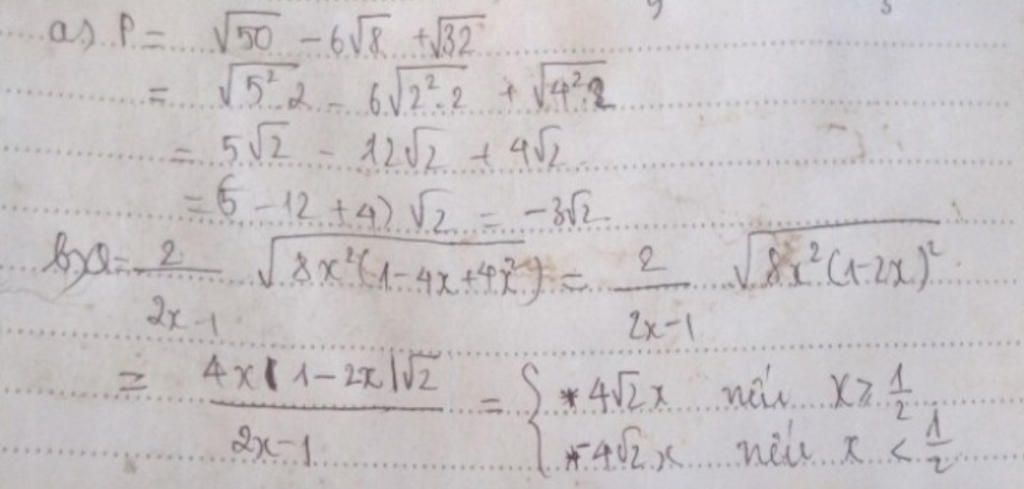 a) P = √50 - 6√8 + √32
= √5².2 - 6√2².2 + √4².2
= 5√2 - 12√2 + 4√2
= (5 - 12 + 4) √2 = -3√2
b) Q = 2/(2x-1) √8x²(1-4x+4x²) = 2/(2x-1) √8x²(1-2x)²
= 4x|1-2x|√2/(2x-1) = { * 4√2x nếu x ≥ 1/2
* -4√2x nếu x < 1/2